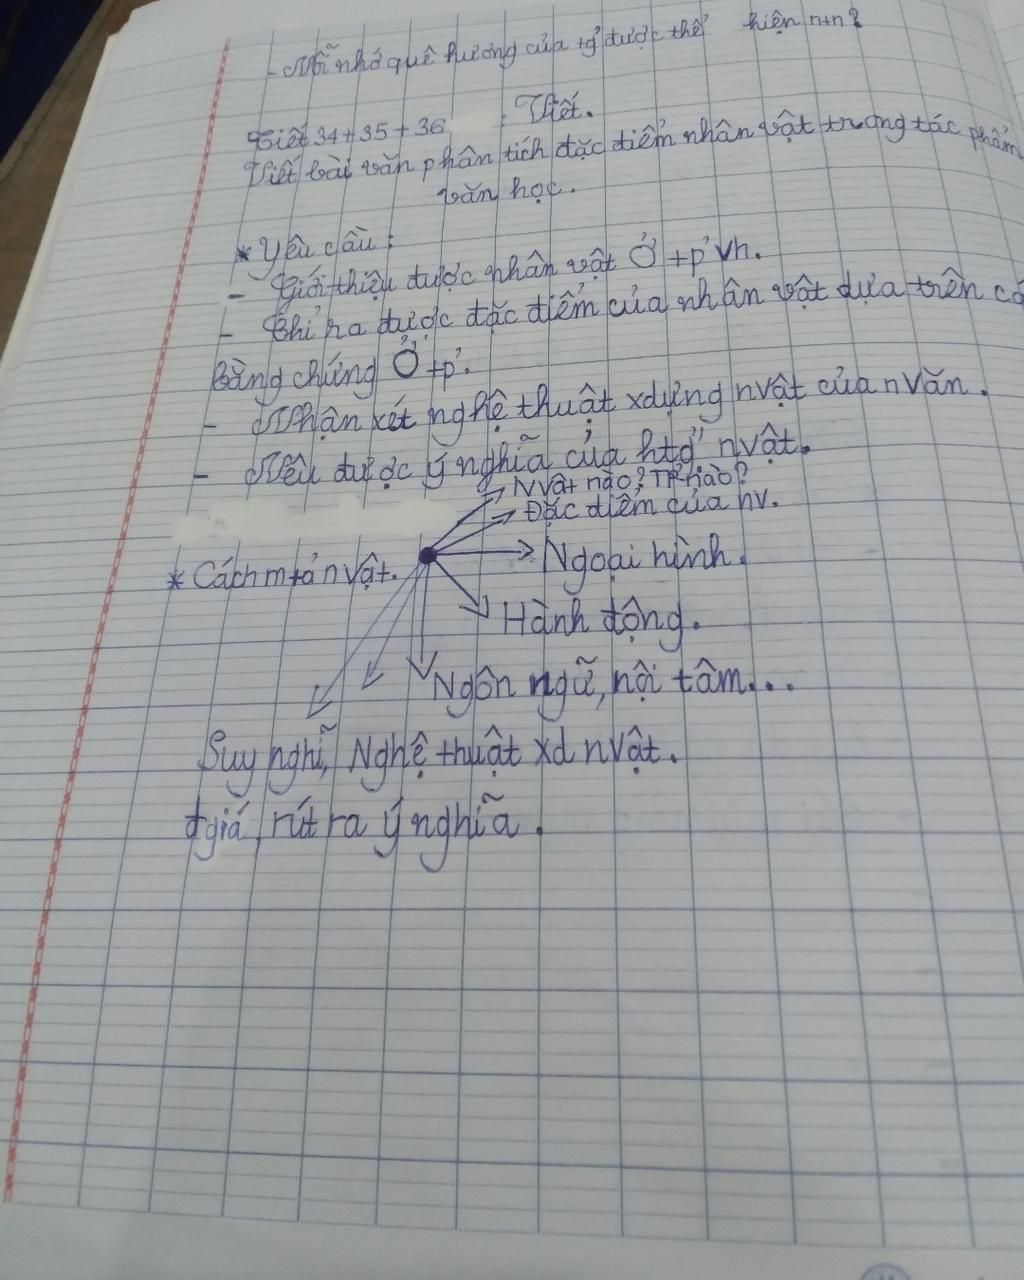 - Nỗi nhớ quê hương của tg' được thể hiện ntn?
Tiết 34+35+36 : Viết.
Viết bài văn phân tích đặc điểm nhân vật trong tác phẩm
văn học.
* Yêu cầu:
- Giới thiệu được nhân vật Ở t p' vh.
- Chỉ ra được đặc điểm của nhân vật dựa trên cá
Bằng chứng Ở t p'.
- Nhận xét nghệ thuật xdựng nvật của n văn.
- Nêu được ý nghĩa của htg' nvật.
Nvật nào? TP nào?
Đặc điểm của nv.
* Cách m tả n vật.
Ngoại hình.
Hành động.
Ngôn ngữ, nội tâm...
Suy nghĩ, Nghệ thuật xd nvật.
đgiá, rút ra ý nghĩa.